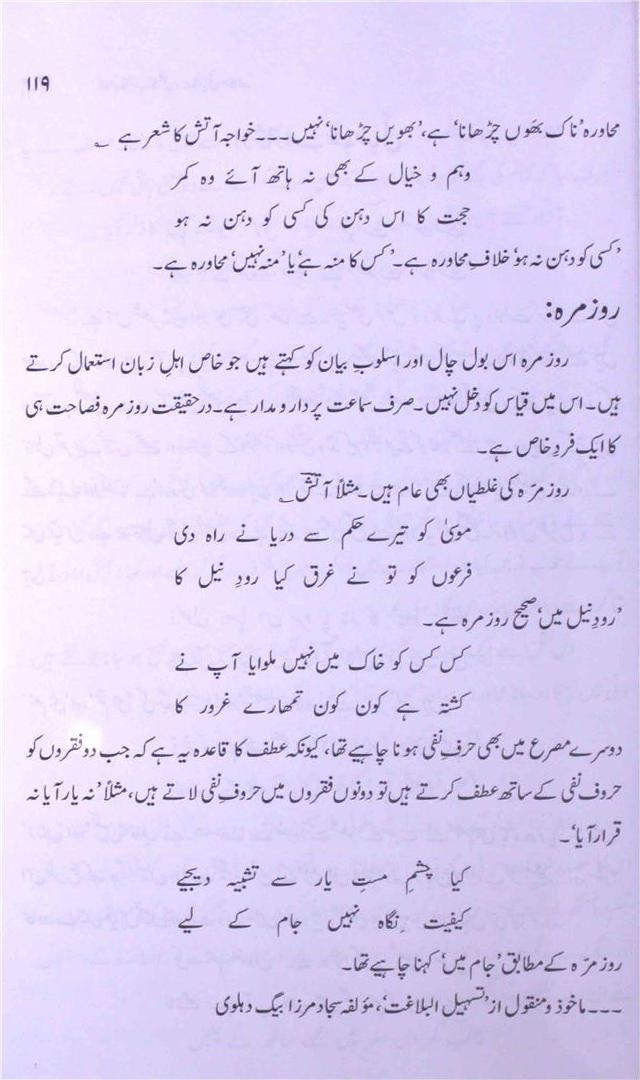 ۱۱۹
محاورہ ’ناک بھَوں چڑھانا‘ ہے، ’بھویں چڑھانا‘ نہیں۔۔۔ خواجہ آتش کا شعر ہے ؎
وہم و خیال کے بھی نہ ہاتھ آئے وہ کمر
حجت کا اس دہن کی کسی کو دہن نہ ہو
’کسی کو دہن نہ ہو‘ خلافِ محاورہ ہے۔ ’کس کا منہ ہے‘ یا ’منہ نہیں‘ محاورہ ہے۔
روزمرہ:
روزمرہ اس بول چال اور اسلوبِ بیان کو کہتے ہیں جو خاص اہلِ زبان استعمال کرتے
ہیں۔ اس میں قیاس کو دخل نہیں۔ صرف سماعت پر دار و مدار ہے۔ درحقیقت روزمرہ فصاحت ہی
کا ایک فردِ خاص ہے۔
روزمرّہ کی غلطیاں بھی عام ہیں۔ مثلاً آتشؔ ؎
موسیٰ کو تیرے حکم سے دریا نے راہ دی
فرعوں کو تو نے غرق کیا رودِ نیل کا
’رودِ نیل میں‘ صحیح روزمرہ ہے۔
کس کس کو خاک میں نہیں ملوایا آپ نے
کشتہ ہے کون کون تمھارے غرور کا
دوسرے مصرع میں بھی حرفِ نفی ہونا چاہیے تھا، کیونکہ عطف کا قاعدہ یہ ہے کہ جب دو فقروں کو
حروف نفی کے ساتھ عطف کرتے ہیں تو دونوں فقروں میں حروفِ نفی لاتے ہیں، مثلاً ’نہ یار آیا نہ
قرار آیا‘۔
کیا چشم مست یار سے تشبیہ دیجیے
کیفیت نگاہ نہیں جام کے لیے
روزمرّہ کے مطابق ’جام میں‘ کہنا چاہیے تھا۔
۔۔۔ ماخوذ و منقول از ’تسہیل البلاغت‘، مؤلفہ سجاد مرزا بیگ دہلوی